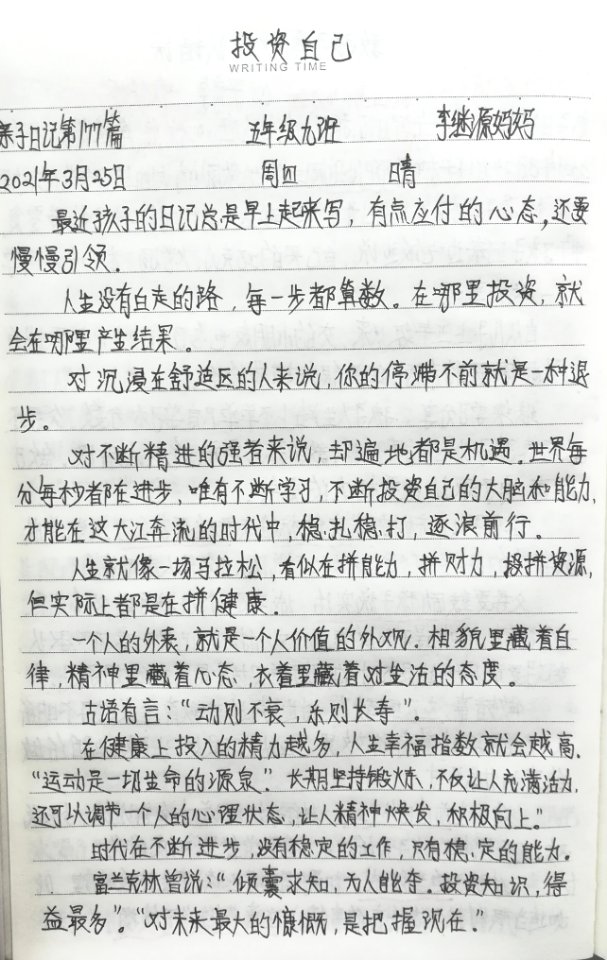 投资自己
WRITING TIME
亲子日记第177篇 五年级九班 李继源妈妈
2021年3月25日 周四 晴
最近孩子的日记总是早上起来写，有点应付的心态，还要
慢慢引领。
人生没有白走的路，每一步都算数。在哪里投资，就
会在哪里产生结果。
对沉浸在舒适区的人来说，你的停滞不前就是一种退
步。
对不断精进的强者来说，却遍地都是机遇。世界每
分每秒都在进步，唯有不断学习，不断投资自己的大脑和能力，
才能在这大江奔流的时代中，稳扎稳打，逐浪前行。
人生就像一场马拉松，看似在拼能力，拼财力，拼资源，
但实际上都是在拼健康。
一个人的外表，就是一个人价值的外观。相貌里藏着自
律，精神里藏着心态，衣着里藏着对生活的态度。
古语有言：“动则不衰，乐则长寿”。
在健康上投入的精力越多，人生幸福指数就会越高。
“运动是一切生命的源泉”。长期坚持锻炼，不仅让人充满活力，
还可以调节一个人的心理状态，让人精神焕发，积极向上。”
时代在不断进步，没有稳定的工作，只有稳定的能力。
富兰克林曾说：“倾囊求知，无人能夺。投资知识，得
益最多”。“对未来最大的慷慨，是把握现在。”